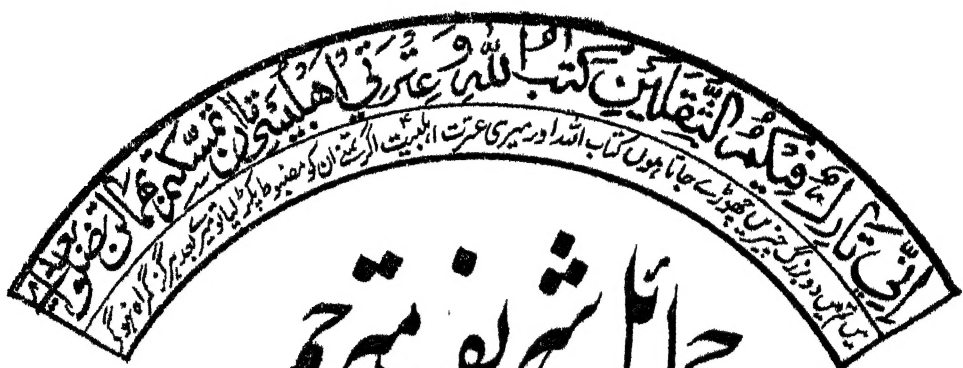 اِنِّیْ تَارِكٌ فِیْكُمُ الثَّقَلَیْنِ كِتٰبَ اللّٰهِ وَ عِتْرَتِیْ اَهْلَبَیْتِیْ اِنْ تَمَسَّكْتُمْ بِهِمَا لَنْ تَضِلُّوْا بَعْدِیْ
میں تم میں دو بزرگ چیزیں چھوڑے جاتا ہوں کتاب اللہ اور میری عترت اہلبیت اگر تمنے ان کو مضبوط پکڑ لیا تو میرے بعد ہرگز گمراہ نہوگے
حمائل شریف مترجم